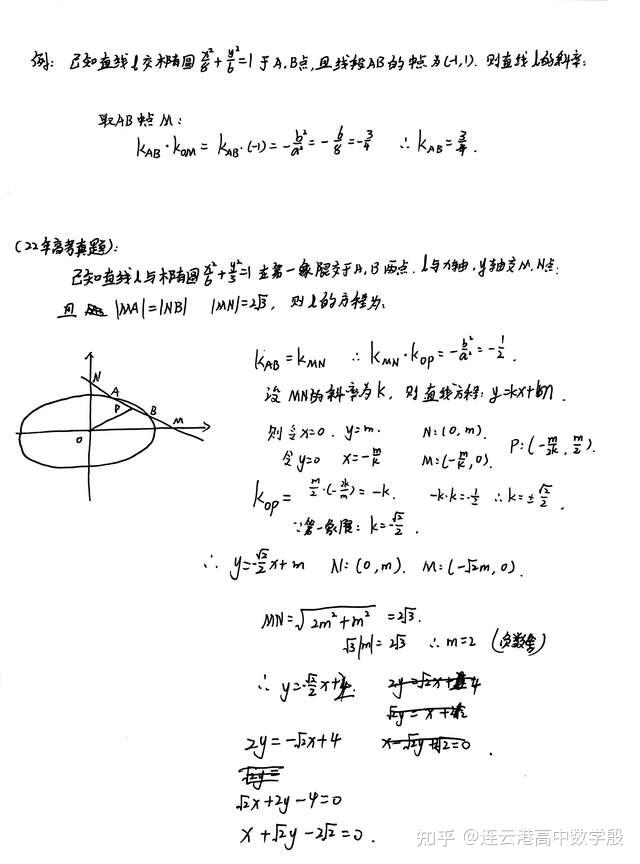 例: 已知直线l交椭圆x²/8+y²/6=1于A.B点,且线段AB的中点为(-1,1). 则直线l的斜率:
取AB中点M:
k_AB·k_OM = k_AB·(-1) = -b²/a² = -6/8 = -3/4 ∴k_AB=3/4.
(22年高考真题):
已知直线l与椭圆x²/6+y²/3=1在第一象限交于A,B两点. l与x轴,y轴交M,N点:
且 |MA|=|NB| |MN|=2√3, 则l的方程为:
N
A
P
B
M
O
k_AB=k_MN ∴k_MN·k_OP=-b²/a²=-1/2.
设MN的斜率为k, 则直线方程: y=kx+m.
则令x=0. y=m. N:(0,m).
令y=0 x=-m/k M:(-m/k,0). P:(-m/2k,m/2).
k_OP= m/2·(-2k/m)=-k. -k·k=-1/2 ∴k=±√2/2.
∵第一象限: k=-√2/2.
∴ y=-√2/2x+m N:(0,m). M:(-√2m,0).
MN=√2m²+m² =2√3.
√3|m|=2√3 ∴m=2 (负数舍)
∴ y=-√2/2x+2. 2y=√2x+4
√2y=x+2√2
2y=-√2x+4 x-√2y+2√2=0.
√2y=
√2x+2y-4=0
x+√2y-2√2=0.
知乎 @连云港高中数学殷